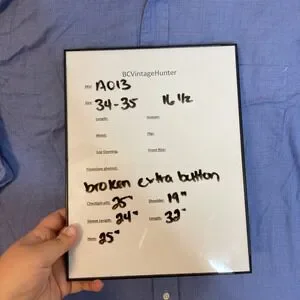 BCVintageHunter
SKU: 17A013
Size: 34-35 16 1/2
Length: Inseam:
Waist: Hip:
Leg Opening: Front Rise:
Flaws/see photos:
broken extra button
Chest/pit-pit: 25" Shoulder: 19"
Sleeve Length: 24" Length: 32"
Hem: 25"